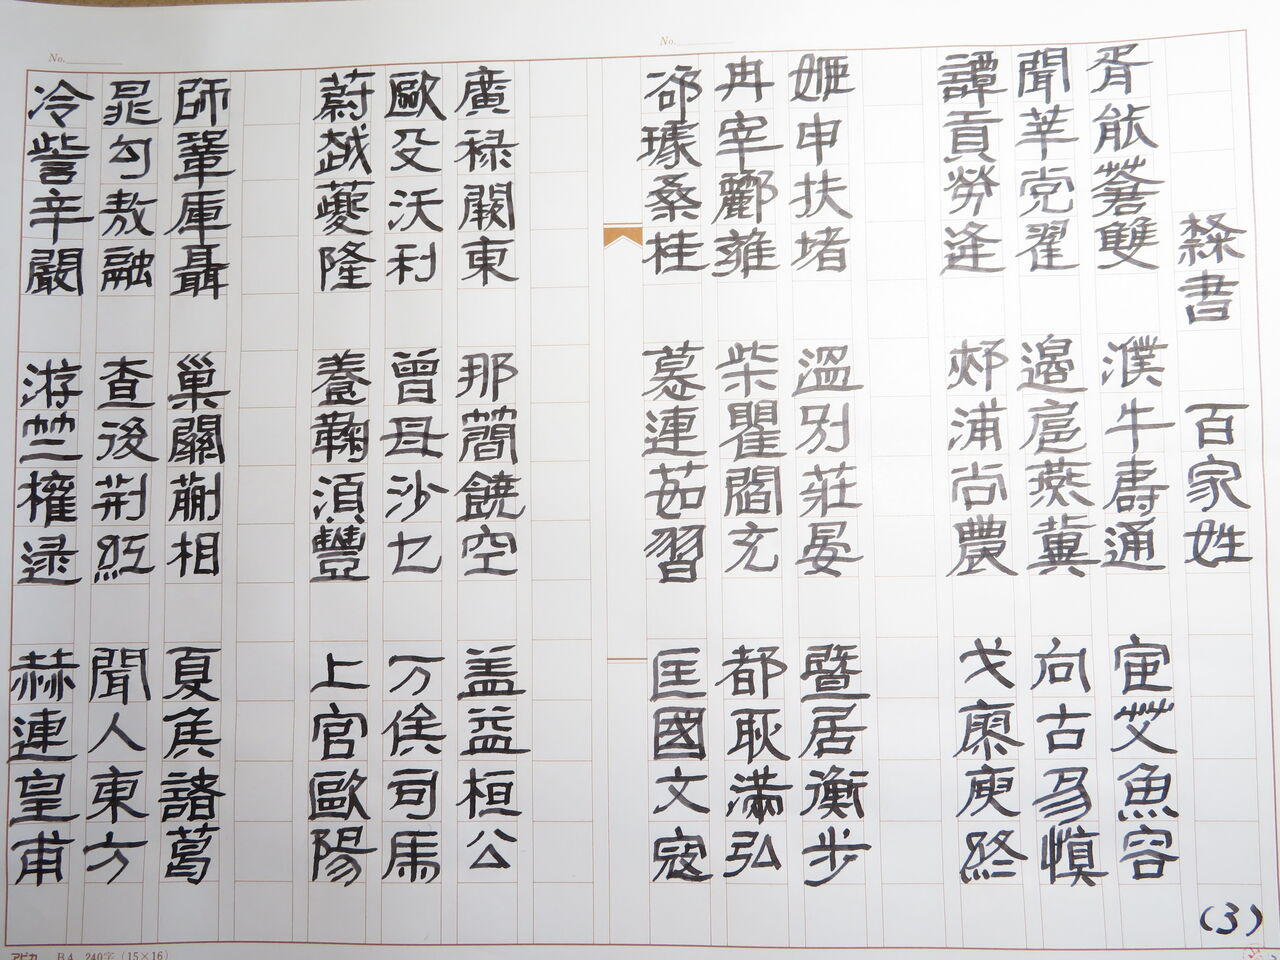 隸書 百家姓
胥能蒼雙 濮牛壽通 宦艾魚容
聞莘党翟 邉扈燕冀 向古易慎
譚貢勞逄 郟浦尚農 戈廖庾終
姬申扶堵 溫別莊晏 暨居衡步
冉宰酈雍 柴瞿閻充 都耿滿弘
郤璩桑桂 慕連茹習 匡國文寇
廣禄闕東 那簡饒空 盖益桓公
歐殳沃利 曾毋沙乜 万俟司馬
蔚越夔隆 養鞠須豐 上官歐陽
師鞏厙聶 巢關蒯相 夏侯諸葛
晁勾敖融 查後荆紅 聞人東方
冷訾辛闞 游竺權逯 赫連皇甫
(3)
No.
No.
アピカ B4 240字(15×16)